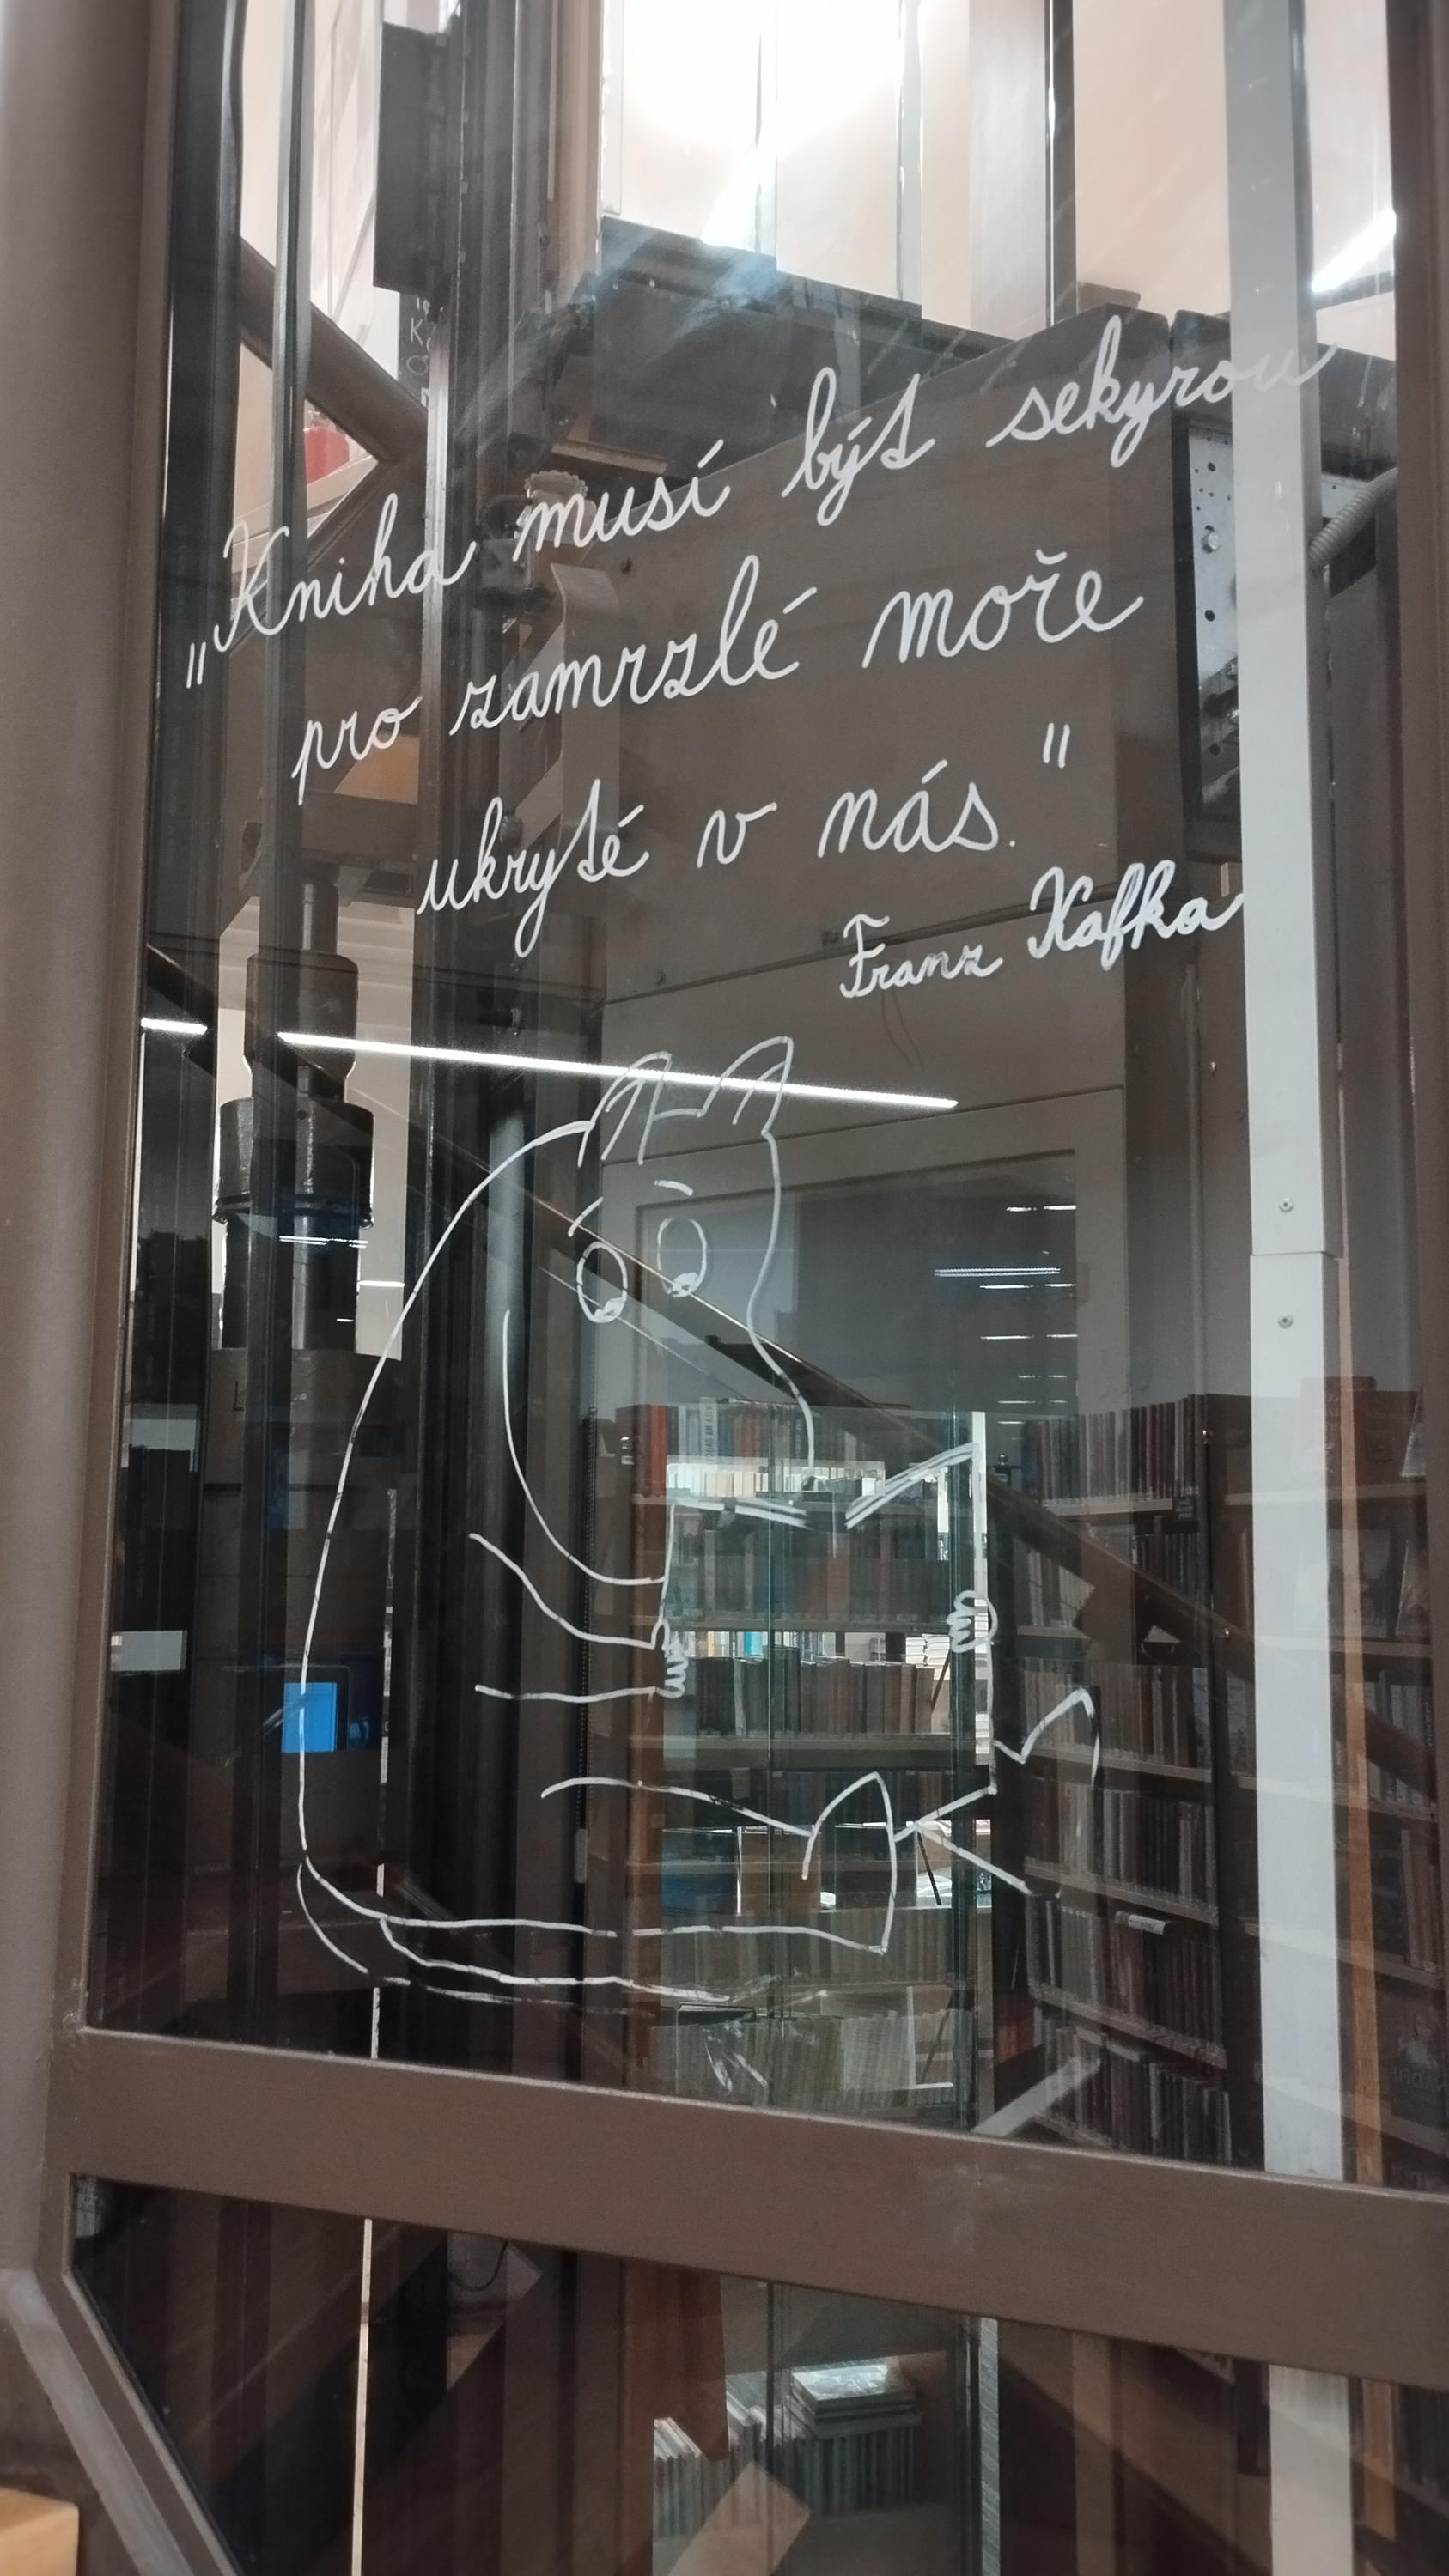 „Kniha musí být sekyrou
pro zamrzlé moře
ukryté v nás."
Franz Kafka